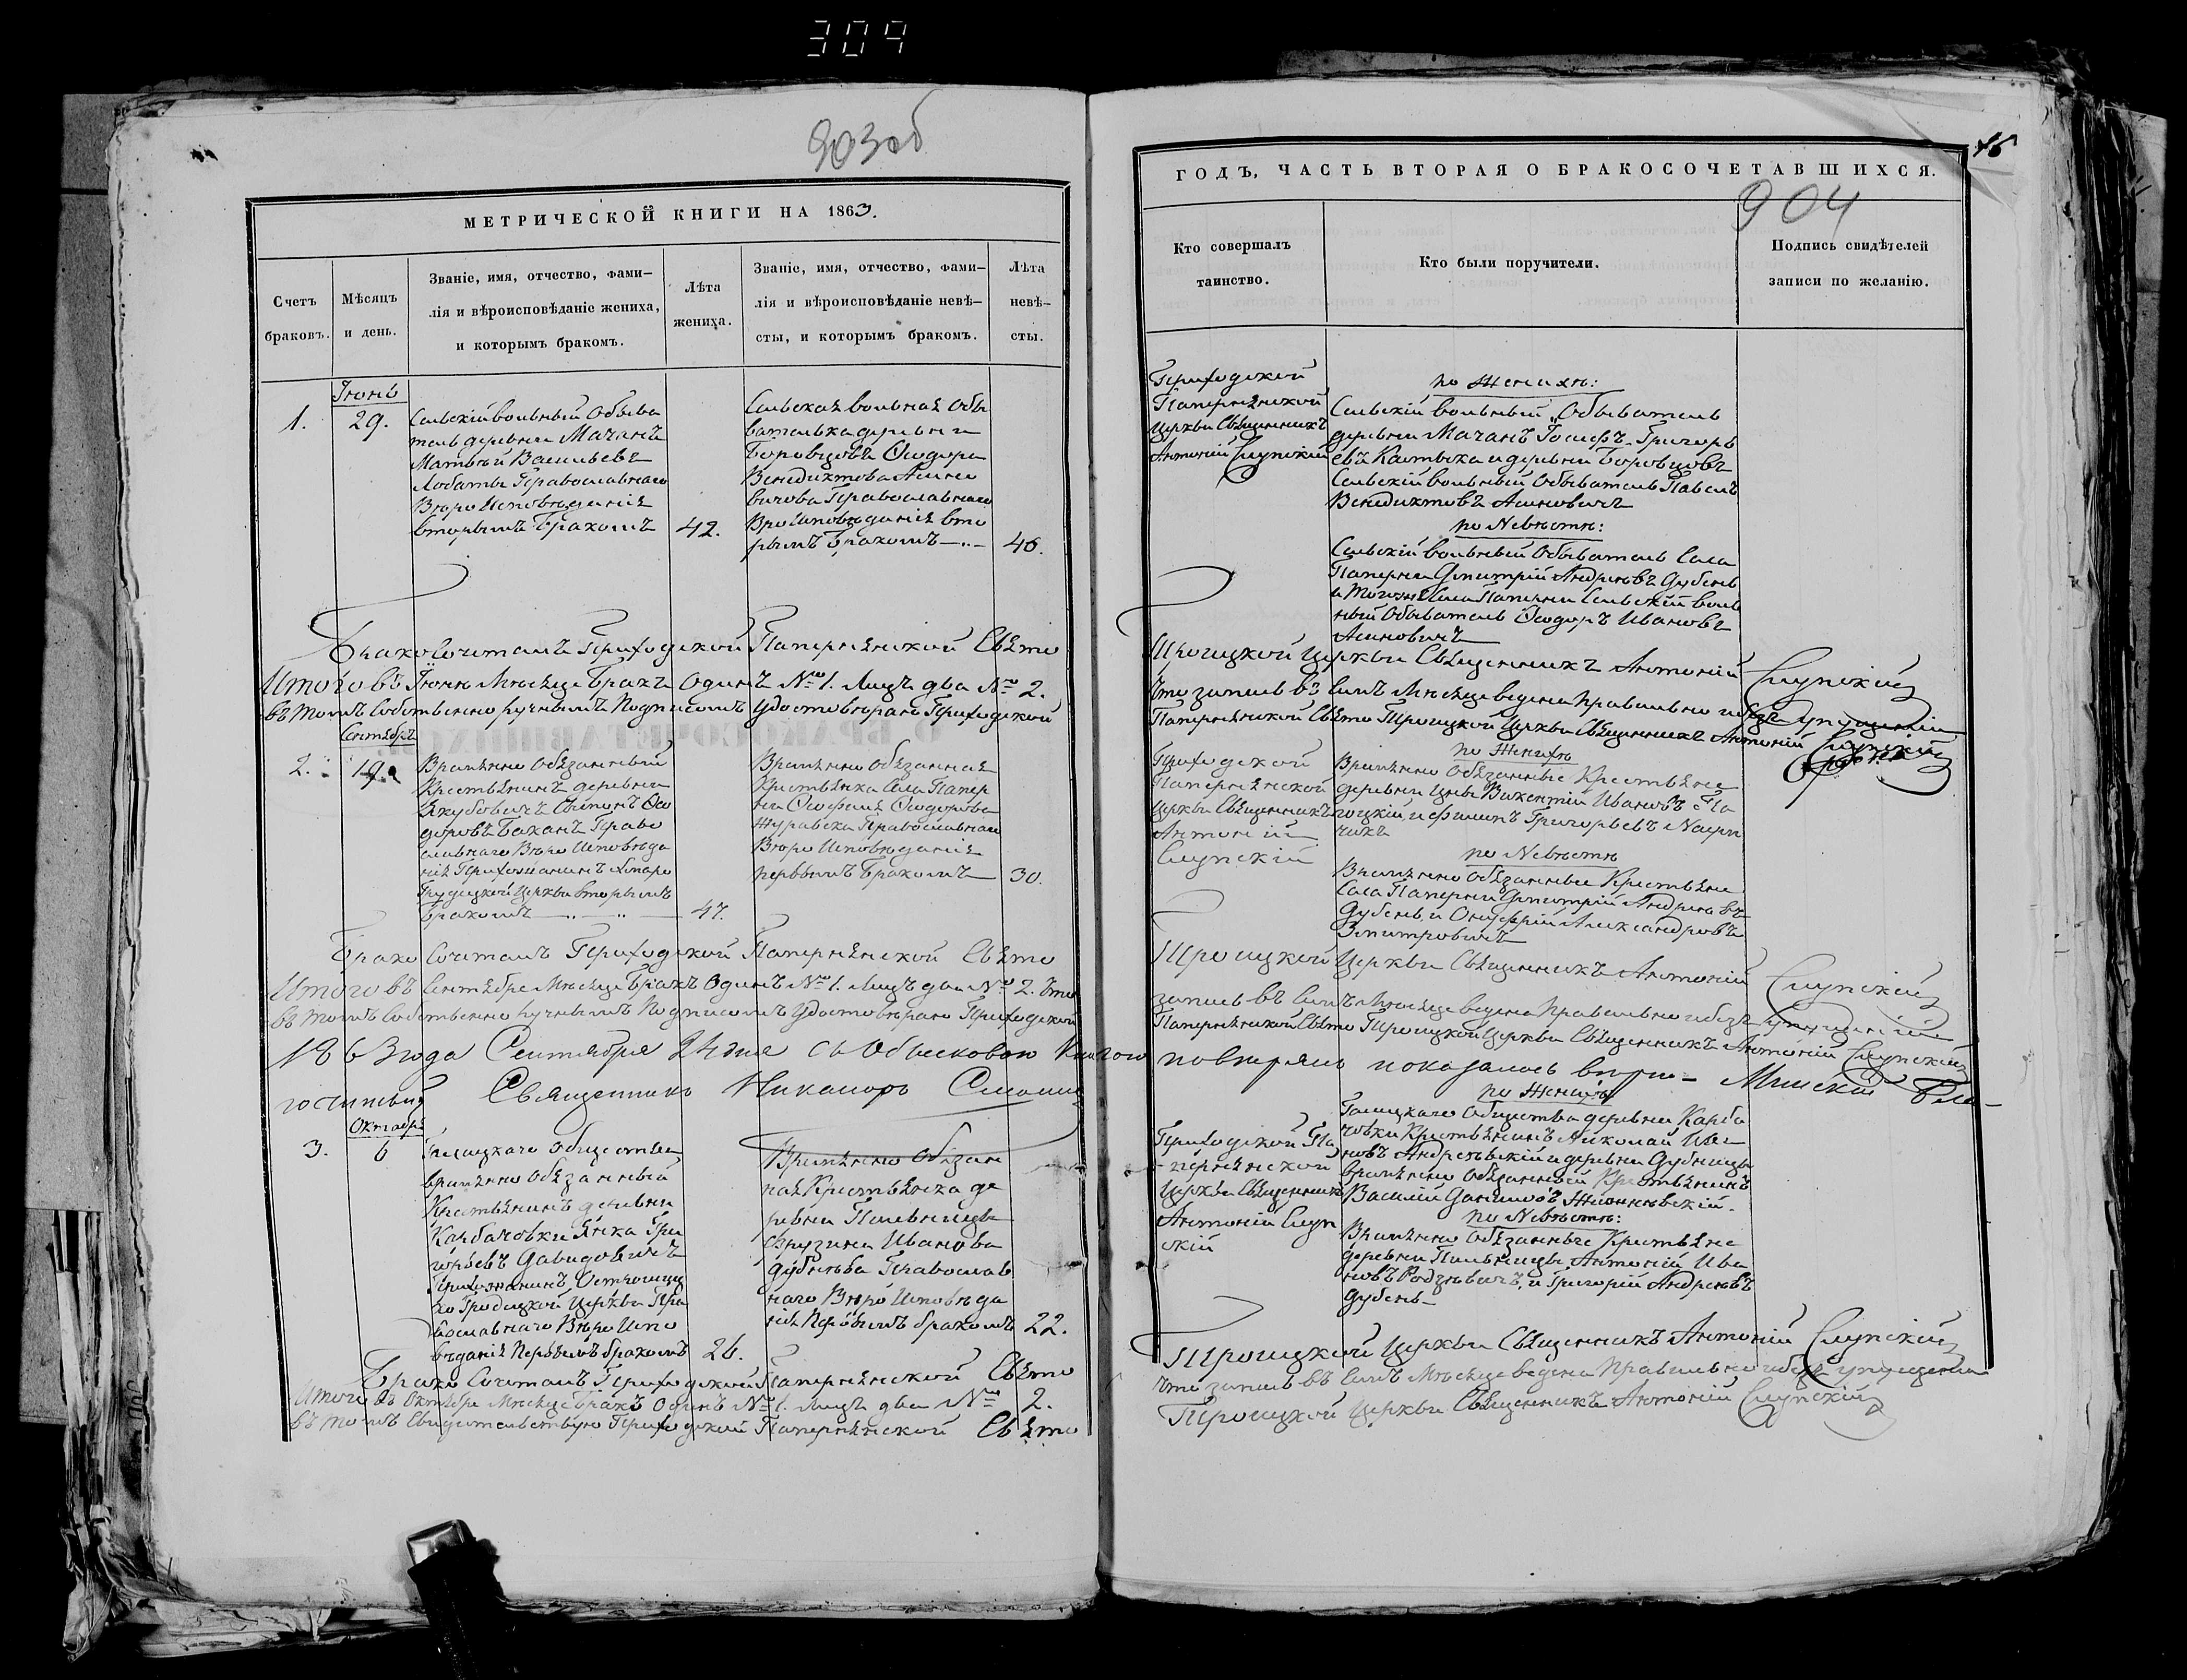 309
903об
МЕТРИЧЕСКОЙ КНИГИ НА 1863.
Счетъ браковъ.
Мѣсяцъ и день.
Званіе, имя, отчество, фами-
лія и вѣроисповѣданіе жениха,
и которымъ бракомъ.
Лѣта жениха.
Званіе, имя, отчество, фами-
лія и вѣроисповѣданіе невѣ-
сты, и которымъ бракомъ.
Лѣта невѣ-
сты.
Іюнь
1.
29.
Сельскій вольный Обыва
тель деревни Мачанъ
Матвей Васильевъ
Лобатый Православнаго
Вѣроисповѣданія
вторымъ бракомъ
42.
Сельская вольная Обы
вателька деревни
Боровцовъ Ѳеодора
Венедиктова Асино
вичова Православнаго
Вѣроисповѣданія вто
рымъ бракомъ
46.
Бракосочеталъ Приходской Папернянской Свято
Итого въ Іюнѣ Мѣсяцѣ Бракъ одинъ № 1. Лицъ два № 2.
въ томъ Собственноручнымъ Подписомъ Удостовѣряю Приходской
Сентябрь
2.
19.
Временно Обязанный
Крестьянинъ деревни
Якубовичъ Антонъ Ѳео
доровъ Баханъ Право
славнаго Вѣроисповѣда
нія Прихожанинъ Старо
Церкви вторымъ
бракомъ
47.
Временно обязанная
Крестьянка Села Папер
ни Ѳеодорова
Журавска Православнаго
Вѣроисповѣданія
первымъ бракомъ
30.
Бракосочеталъ Приходской Папернянской Свято
Итого въ Сентябрѣ Мѣсяцѣ Бракъ Одинъ № 1. Лицъ два № 2. Что
въ томъ Собственноручнымъ Подписомъ Удостовѣряю Приходской
1863 года Сентября 24 дня съ Обыскною Книгою
Священникъ Никаноръ
Октябрь
3.
6
Общества
временно обязанный
Крестьянинъ деревни
Карбачовки Янка Гри
горьевъ Давидовичъ
Прихожанинъ Острошиц
ко Городецкой Церкви Пра
вославнаго Вѣроиспо
вѣданія Первымъ бракомъ
26.
Временно обязан
ная Крестьянка де
ревни Пильницы
Фрузына Иванова
Дубнева Православ
наго Вѣроисповѣда
нія Первымъ бракомъ
22.
Бракосочеталъ Приходской Папернянской Свято
Итого въ Октябрѣ Мѣсяцѣ Бракъ Одинъ № 1. Лицъ два № 2.
въ томъ Свидетельствую Приходской Папернянской Свято
16
ГОДЪ, ЧАСТЬ ВТОРАЯ О БРАКОСОЧЕТАВШИХСЯ.
904
Кто совершалъ
таинство.
Кто были поручители.
Подпись свидѣтелей
записи по желанію.
Приходской
Паперянской
Церкви Священникъ
Антоній Слупскій
по Женихѣ:
Сельскій вольный Обыватель
деревни Мачанъ Іосифъ Григорь
евъ и деревни Боровцовъ
Сельскій вольный Обыватель Павелъ
Венедиктовъ Асиновичъ
по Невѣстѣ:
Сельскій вольный Обыватель Села
Паперни Дмитрій Андреевъ Дубень
и Тогожъ Села Паперни Сельскій воль
ный Обыватель Ѳеодоръ Ивановъ
Асиновичъ
Троицкой Церкви Священникъ Антоній Слупскій
Что запись въ семъ Мѣсяцѣ ведена правильно и безъ упущенія
Паперянской Свято Троицкой Церкви Священникъ Антоній Слупскій
Приходской
Паперянской
Церкви Священникъ
Антоній
Слупскій
по Женихѣ
Временно Обязанные Крестьяне
деревни Цны Викентій Ивановъ Пло
тицкій и Филипъ Григорьевъ
по Невѣстѣ
Временно обязанные Крестьяне
Села Паперни Дмитрій Андреевъ
Дубень и Онуфрій Александровъ
Змитровичъ
Троицкой Церкви Священникъ Антоній Слупскій
запись въ семъ Мѣсяцѣ ведена правильно и безъ упущенія
Паперянской Свято Троицкой Церкви Священникъ Антоній Слупскій
повѣрялъ показалось вѣрно
Приходской Па
пернянской
Церкви Священникъ
Антоній Слуп
скій
по Женихѣ
Общества деревни Карба
човки Крестьянинъ Николай Ива
новъ Андреевскій и деревни Дубницы
временно обязанный Крестьянинъ
Василій Даниловъ
по Невѣстѣ:
Временно обязанные Крестьяне
деревни Пильницы Антоній Ива
новъ Родзевичъ, и Григорій Андреевъ
Дубень
Троицкой Церкви Священникъ Антоній Слупскій
что запись въ семъ Мѣсяцѣ ведена Правильно и безъ упущенія
Троицкой Церкви Священникъ Антоній Слупскій